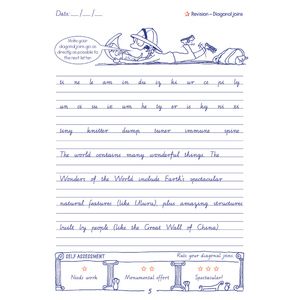 Date: __ / __ / __
☆ Revision – Diagonal joins
Make your
diagonal joins go as
directly as possible to
the next letter.
ti ne le am in du iy ki ur ce pi ly
un is su ix um he ty or ie ky ni
tiny knitter dump tuner immune spine
The world contains many wonderful things. The
Wonders of the World include Earth's spectacular
natural features (like Uluru), plus amazing structures
built by people (like the Great Wall of China).
SELF ASSESSMENT
Rate your diagonal joins.
Needs work
Monumental effort
Spectacular!
5